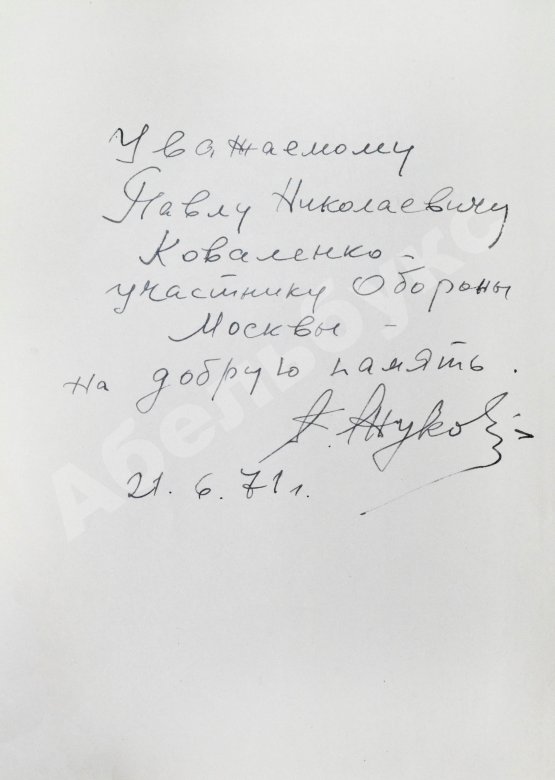 Уважаемому
Павлу Николаевичу
Коваленко –
участнику Обороны
Москвы –
на добрую память.
Г. Жуков
21. 6. 71 г.
Абельбукс